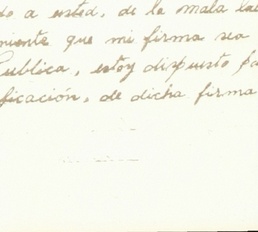 do a usted, de la mala
niente que mi firma sea
Publica, estoy dispuesto
ficación, de dicha firma